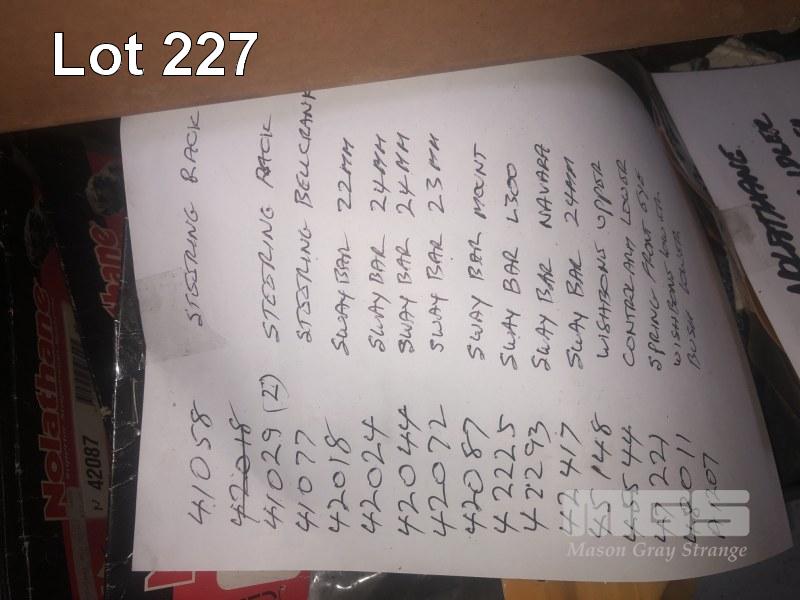 Lot 227
41058 STEERING RACK
42018
41029 (2) STEERING RACK
41077 STEERING BELLCRANK
42018 SWAY BAR 22MM
42024 SWAY BAR 24MM
42044 SWAY BAR 24MM
42072 SWAY BAR 23MM
42087 SWAY BAR MOUNT
42225 SWAY BAR L300
42293 SWAY BAR NAVARA
42417 SWAY BAR 24MM
45148 WISHBONE UPPER
46544 CONTROL ARM LOWER
47221 SPRING FRONT EYE
48011 WISHBONE LOWER
BUSH
Nolathane
Nº 42087
NOLATHANE
IDLER
MGS
Mason Gray Strange